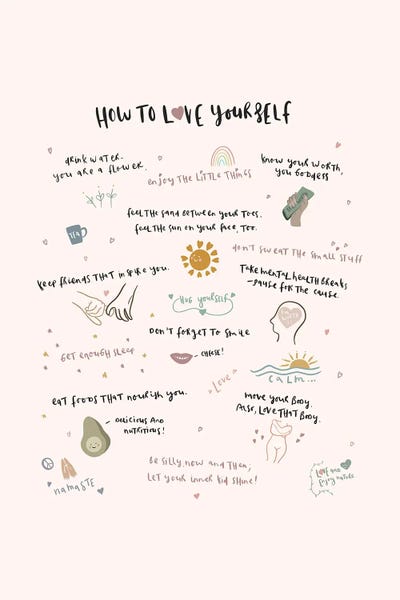 HOW TO LOVE YOURSELF
DRINK WATER.
YOU ARE A FLOWER.
ENJOY THE LITTLE THINGS
KNOW YOUR WORTH,
YOU GODDESS
FEEL THE SAND BETWEEN YOUR TOES.
FEEL THE SUN ON YOUR FACE, TOO.
TEA
DON'T SWEAT THE SMALL STUFF
KEEP FRIENDS THAT INSPIRE YOU.
TAKE MENTAL HEALTH BREAKS
-PAUSE FOR THE CAUSE.
HUG YOURSELF
DON'T FORGET TO SMILE
GET ENOUGH SLEEP
CHEESE!
CALM...
LOVE
EAT FOODS THAT NOURISH YOU.
MOVE YOUR BODY.
ALSO, LOVE THAT BODY.
DELICIOUS AND
NUTRITIOUS!
BE SILLY, NOW AND THEN,
LET YOUR INNER KID SHINE!
NAMASTE
LOVE AND
ENJOY NATURE.